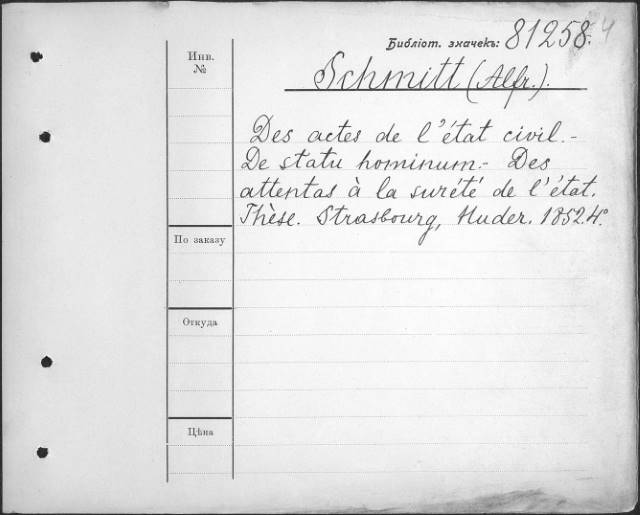 Библіот. значекъ: 81258.
Инв.
№
Schmitt (Alfr.).
Des actes de l'état civil.-
De statu hominum.- Des
attentas à la surété de l'état.
Thèse. Strasbourg, Huder. 1852. 4°.
По заказу
Откуда
Цѣна